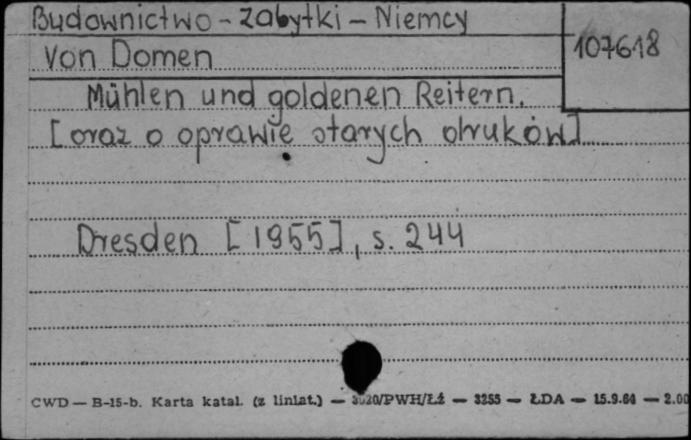 Budownictwo - zabytki - Niemcy
107618
Von Domen
Mühlen und goldenen Reitern.
[oraz o oprawie starych druków]
Dresden [1955], s. 244
CWD — B-15-b. Karta katal. (z liniat.) — 3020/PWH/Łż — 3255 — ŁDA — 15.9.64 — 2.00